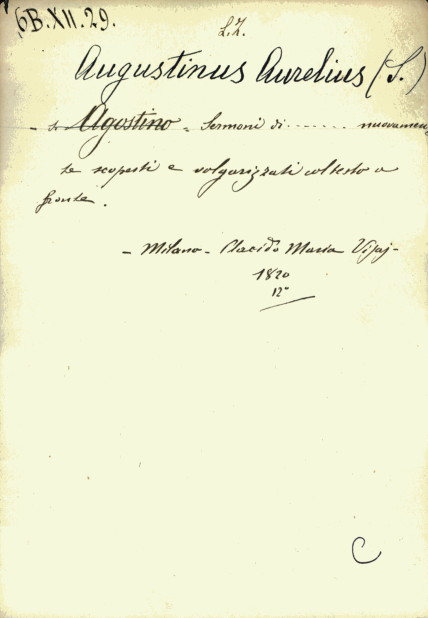 6B.XII.29.
L.Z.
Augustinus Aurelius (S.)
- S. Agostino = Sermoni di ....... nuovamen
te scoperti e volgarizzati col testo a
fronte.
- Milano - Placido Maria Visaj -
1820
12°
C